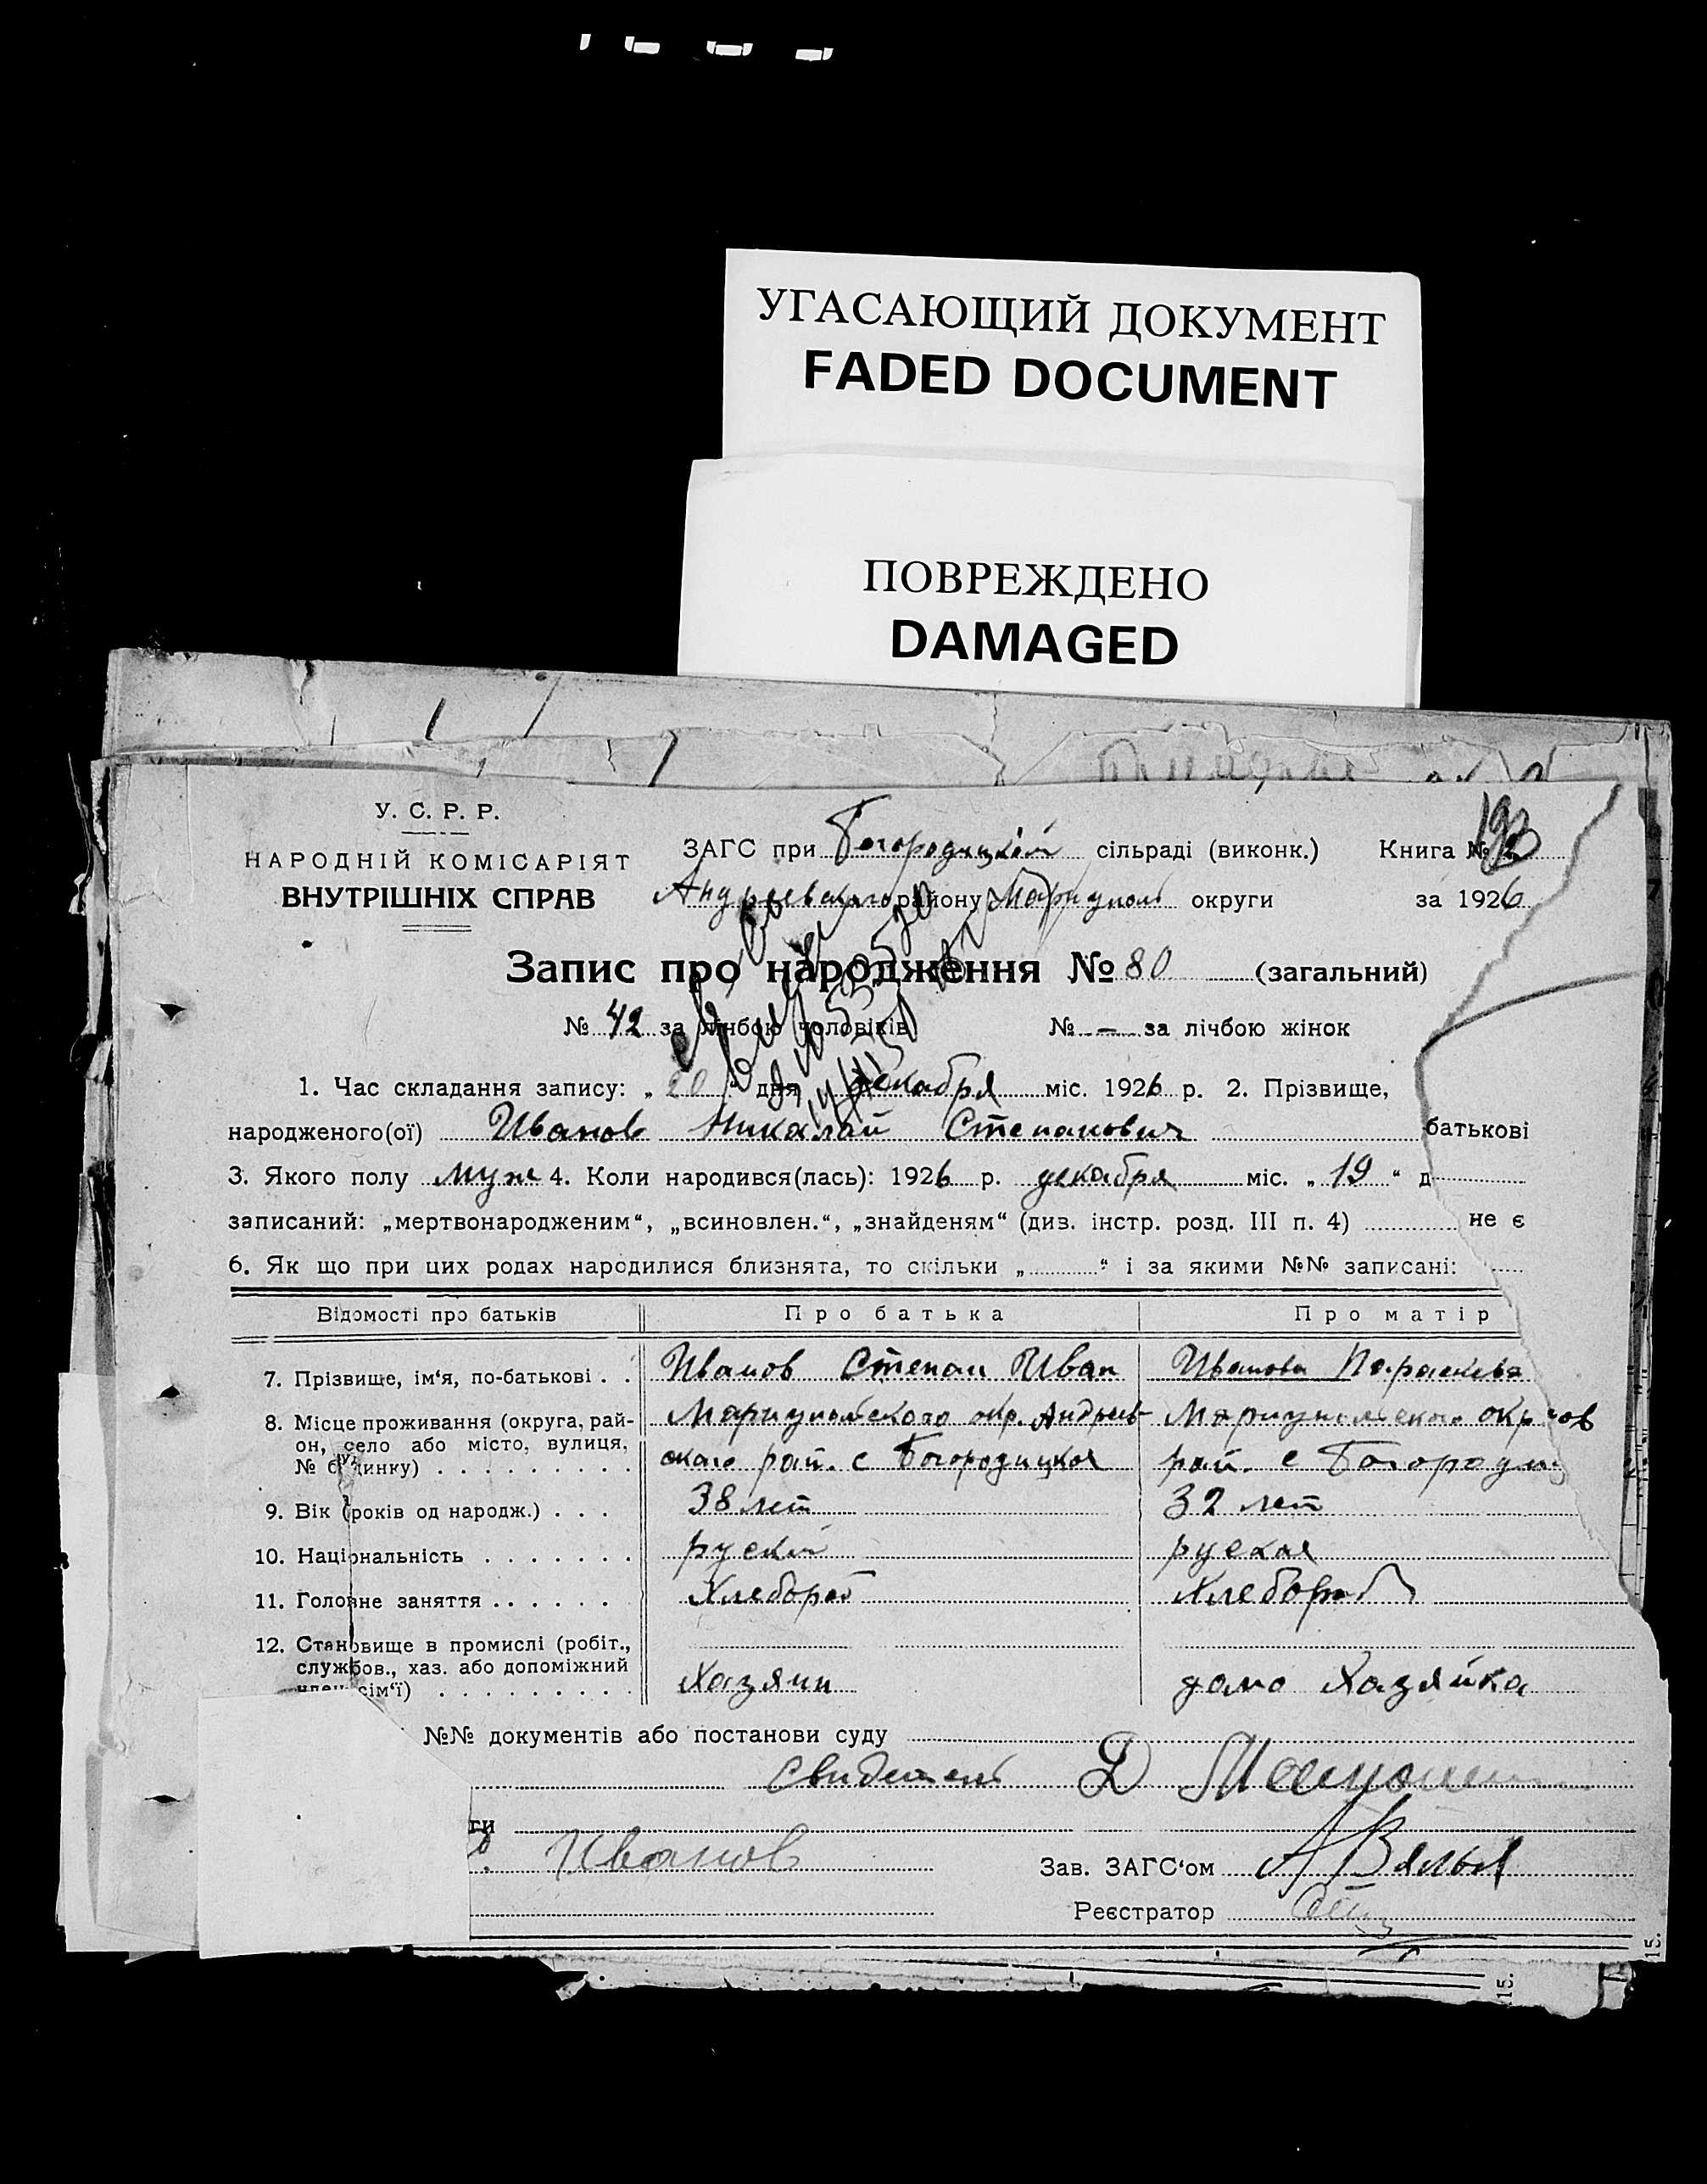 УГАСАЮЩИЙ ДОКУМЕНТ
FADED DOCUMENT
ПОВРЕЖДЕНО
DAMAGED
У. С. Р. Р.
НАРОДНІЙ КОМІСАРІЯТ
ВНУТРІШНІХ СПРАВ
ЗАГС при Богородицкой сільраді (виконк.) Книга №
Андреевского району Мариупол округи за 1926
Запис про народження № 80 (загальний)
№ 42 за лічбою чоловіків № - за лічбою жінок
1. Час складання запису: „20“ дня декабря міс. 1926 р. 2. Прізвище,
народженого(ої) Иванов Николай Степанович батькові
3. Якого полу муж 4. Коли народився(лась): 1926 р. декабря міс. „19“ д
записаний: „мертвонародженим“, „всиновлен.“, „знайденям“ (див. інстр. розд. III п. 4) не є
6. Як що при цих родах народилися близнята, то скільки „ “ і за якими №№ записані:
Відомості про батьків Про батька Про матір
7. Прізвище, ім‘я, по-батькові . . Иванов Степан Иван Иванова Параскева
8. Місце проживання (округа, рай- Мариупольского окр. Андреев- Мариупольского окр
он, село або місто, вулиця, ского рай. с Богородицкое рай. с Богороди
№ будинку)
9. Вік (років од народж.) . . . 38 лет 32 лет
10. Національність . . . . . . . руский руская
11. Головне заняття . . . . . . Хлебороб Хлебороб
12. Становище в промислі (робіт.,
службов., хаз. або допоміжний Хазяин домо Хазяйка
член сім‘ї) . . . . . . . . .
№№ документів або постанови суду
ги
Иванов Зав. ЗАГС‘ом
Реєстратор
15.
15.